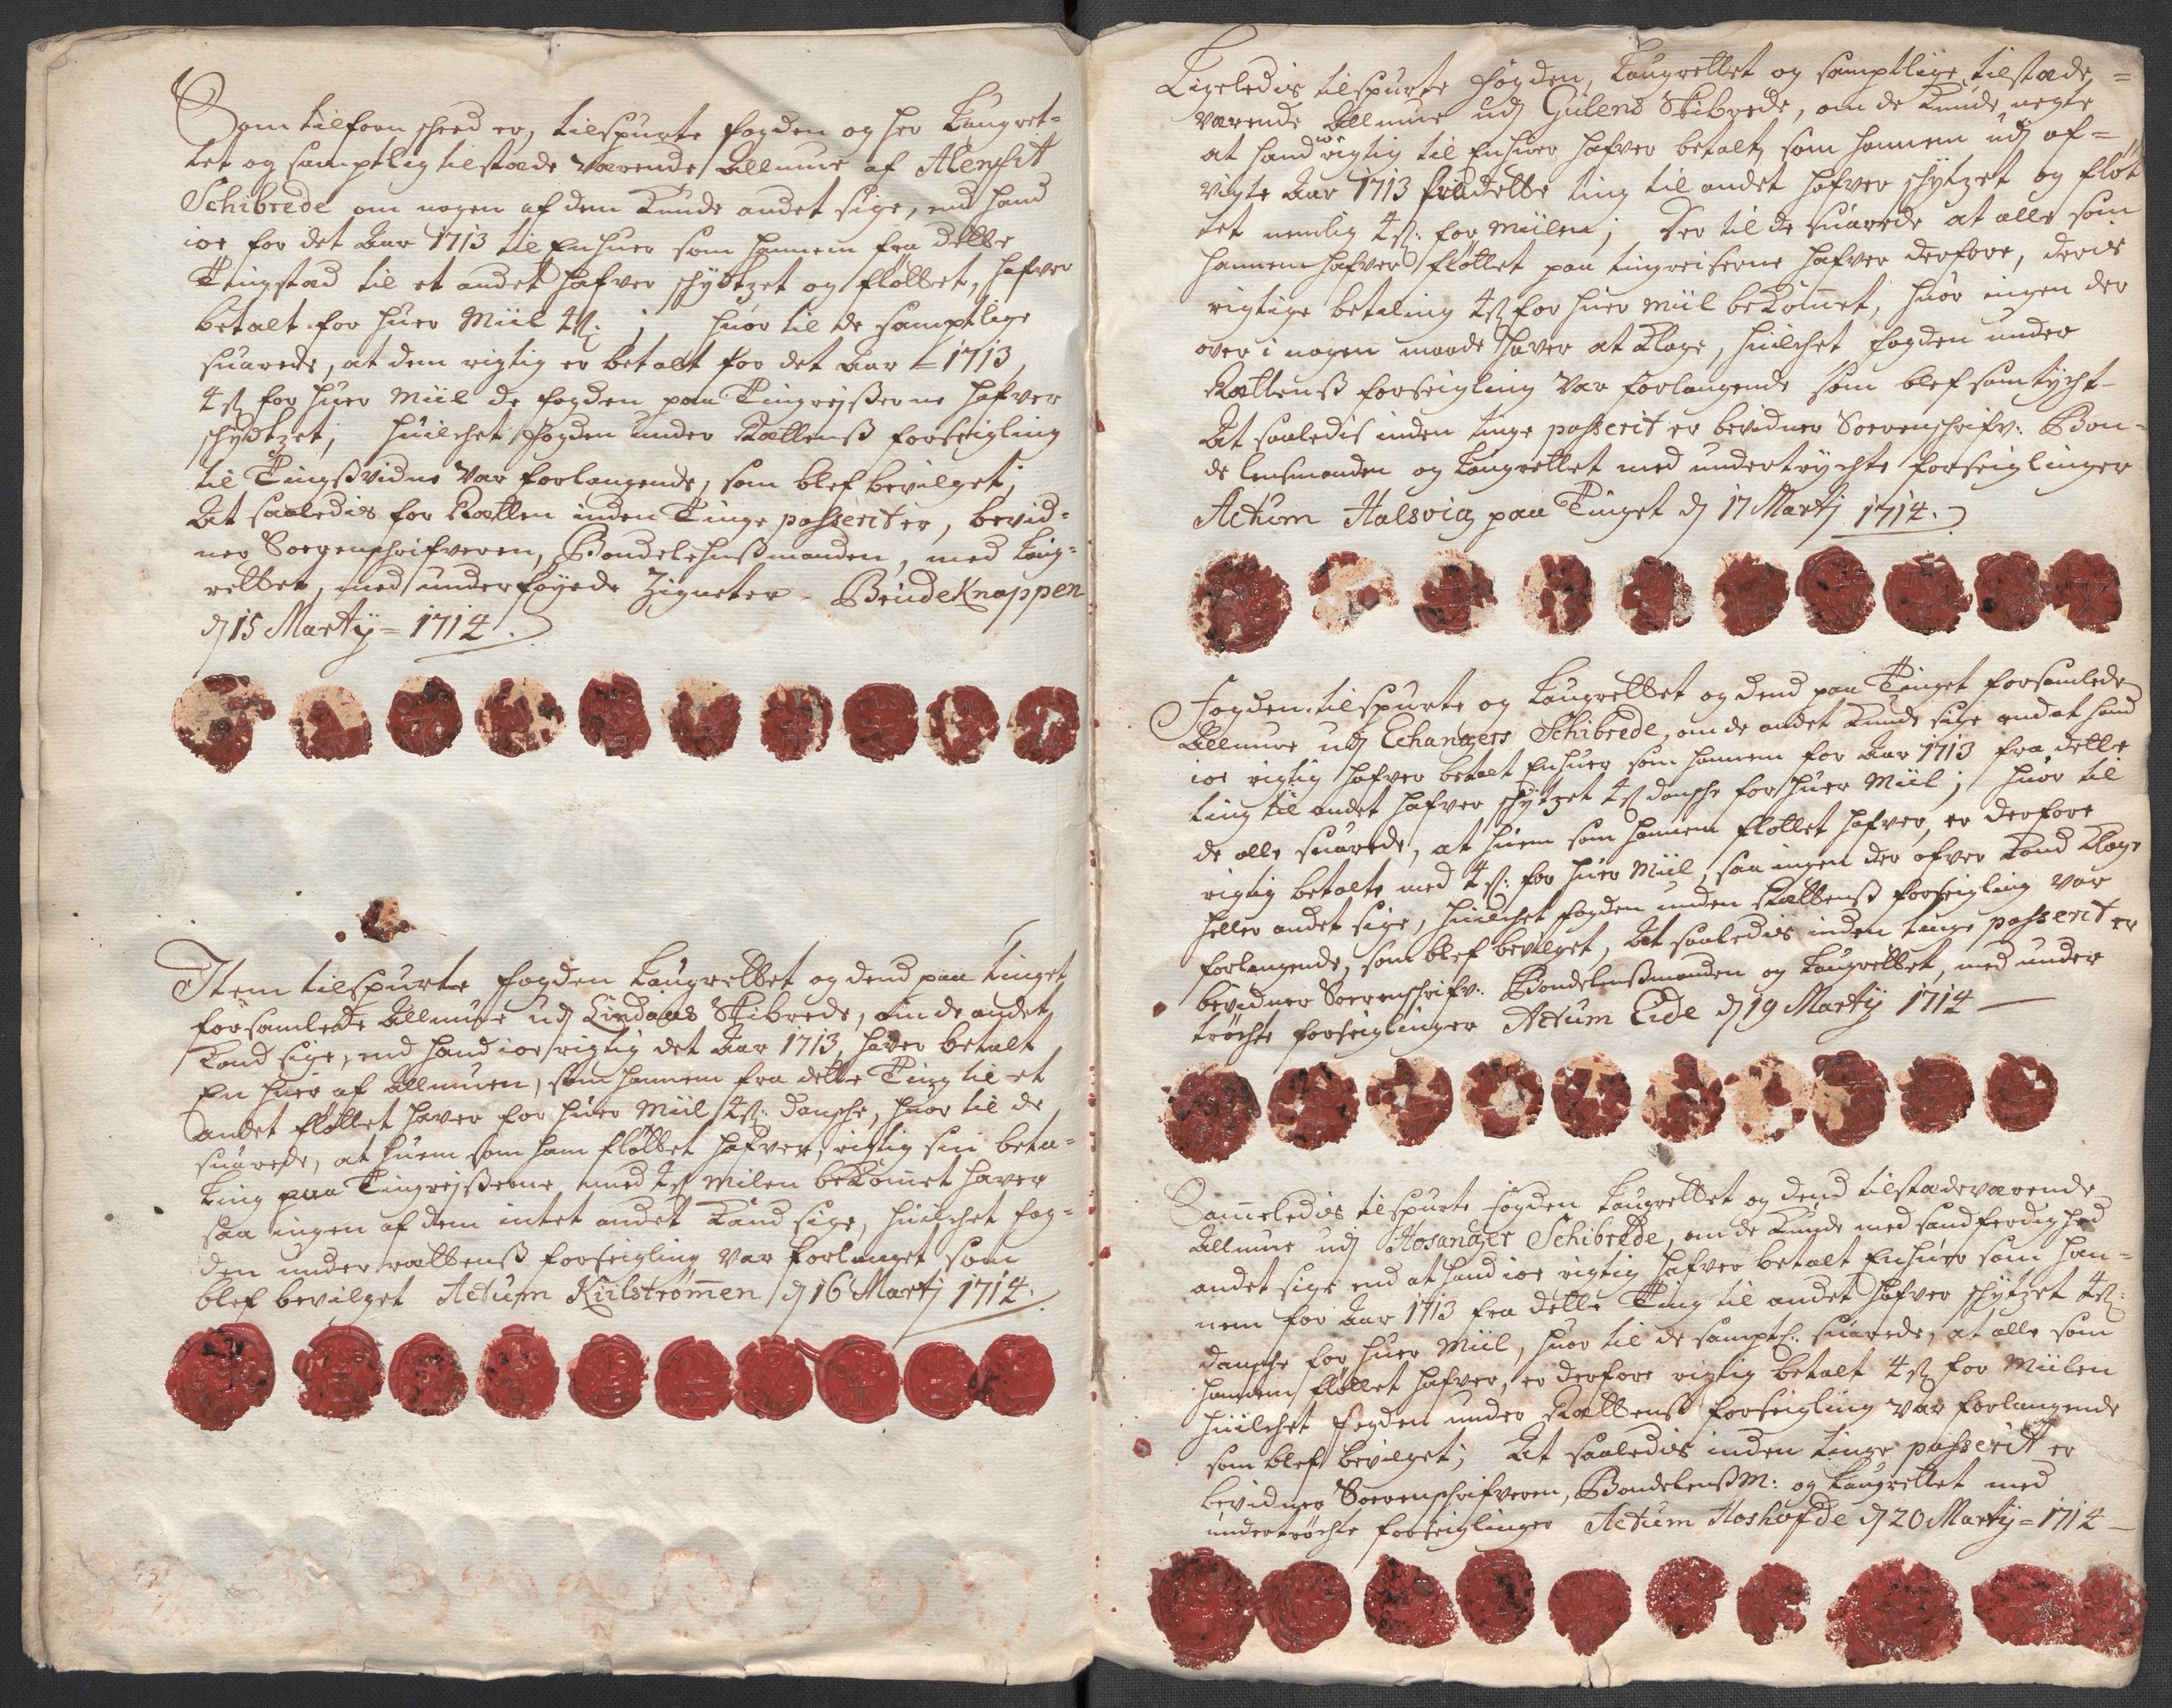 Som tilforn scheed er, tilspurte fogden og her Laugret-
tet og samptlig tilstæde værende Allmue af Alenfit
Schibrede om nogen af dem kunde andet sige, end hand
ioe for det Aar 1713 til Enhuer som hannem fra dette
Tingstæd til et andet hafver schydtzet og fløttet, hafver
betalt for huer Miil 4 ß: ; huor til de samptlige
suarede, at dem rigtig er betalt for det Aar 1713,
4 ß for huer Miil de fogden paa Tingreyßerne hafver
schydtzet; huilchet fogden under Rættenß forseigling
til Tingßvidne var forlangende, som blef bevilget;
At saaledis for Rætten inden Tinge passerit er, bevid-
ner Soerenschrifveren, Bondelehnßmanden, med Laug-
rettet, med underføyede Zigneter. BrudeKnappen
d 15 Martij = 1714.
Item tilspurte fogden Laugrettet og dend paa tinget
forsamlede Allmue udj Lindaas Skibrede, om de andet
kand sige, end hand ioe rigtig det Aar 1713, haver betalt
En huer af Allmuen, som hannem fra dette Ting til et
andet fløttet haver for huer Miil 4 ß: danske, huor til de
suarede, at huem som ham fløttet hafver, rigtig sin beta-
ling paa Tingreyßerne med 4 ß Milen bekommet haver
saa ingen af dem intet andet kand sige, huilchet fog-
den under rættenß forseigling var forlanget som
blef bevilget Actum Kiilstrømmen d 16 Martj 1714.
Ligeledis tilspurte fogden, Laugrettet og samptlige tilstæde =
værende Allmue udj Gulens Skibrede, om de kunde negte
at hand ioe rigtig til Enhuer hafver betalt, som hannem udj af-
vigte Aar 1713 fra dette ting til andet hafver schytzet og fløt
tet nemlig 4 ß: for Miilen; Der til de suarede at alle som
hannem hafver fløttet paa tingreiserne hafver derfore, deris
rigtige betaling 4 ß for huer Miil bekommet, huor ingen der
over i nogen maade hafver at klage, huilchet fogden under
Rættenß forseigling var forlangende som blef samtycht-
At saaledis inden tinge passerit er bevidner Soerenschrifv: Bon-
de lensmanden og Laugrettet med undertrychte forseiglinger
Actum Halsvig paa Tinget d 17 Martj 1714.
Fogden tilspurte og Laugrettet og dend paa Tinget forsamlede
Allmue udj Echangers Schibrede, om de andet kunde sige end at hand
ioe rigtig hafver betalt Enhuer som hannem for Aar 1713 fra dette
ting til andet hafver schytzet 4 ß dansche for huer Miil; huor til
de alle suarede, at huem som hannem fløttet hafver, er derfore
rigtig betalte med 4 ß: for huer Miil, saa ingen der ofver kand klage
heller andet sige, huilchet fogden under Rættenß forseigling var
forlangende, som blef bevilget, At saaledis inden tinge passerit er
bevidner Soerenschrifv: Bondelensmanden og Laugrettet, med under
trøchte forseiglinger Actum Eide d 19 Martij 1714
Sammeledis tilspurte fogden Laugrettet og dend tilstædeværende
Allmue udj Hosanger Schibrede, om de kunde med sandferdighed
andet sige end at hand ioe rigtig hafver betalt Enhuer som han-
nem for Aar 1713 fra dette Ting til andet hafver schytzet 4 ß:
dansche for huer Miil, huor til de samptl: suarede, at alle som
hannem fløttet hafver, er derfore rigtig betalt 4 ß for Miilen
huilchet fogden under Rættenß forseigling var forlangende
som blef bevilget; At saaledis inden tinge passerit er
bevidner Soerenschrifveren, Bondelensm: og Laugrettet med
undertrøchte forseiglinger Actum Hoshofde d 20 Martij = 1714